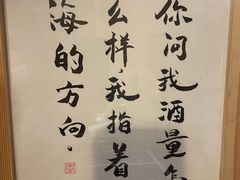 你问我酒量怎
么样，我指着
海的方向。